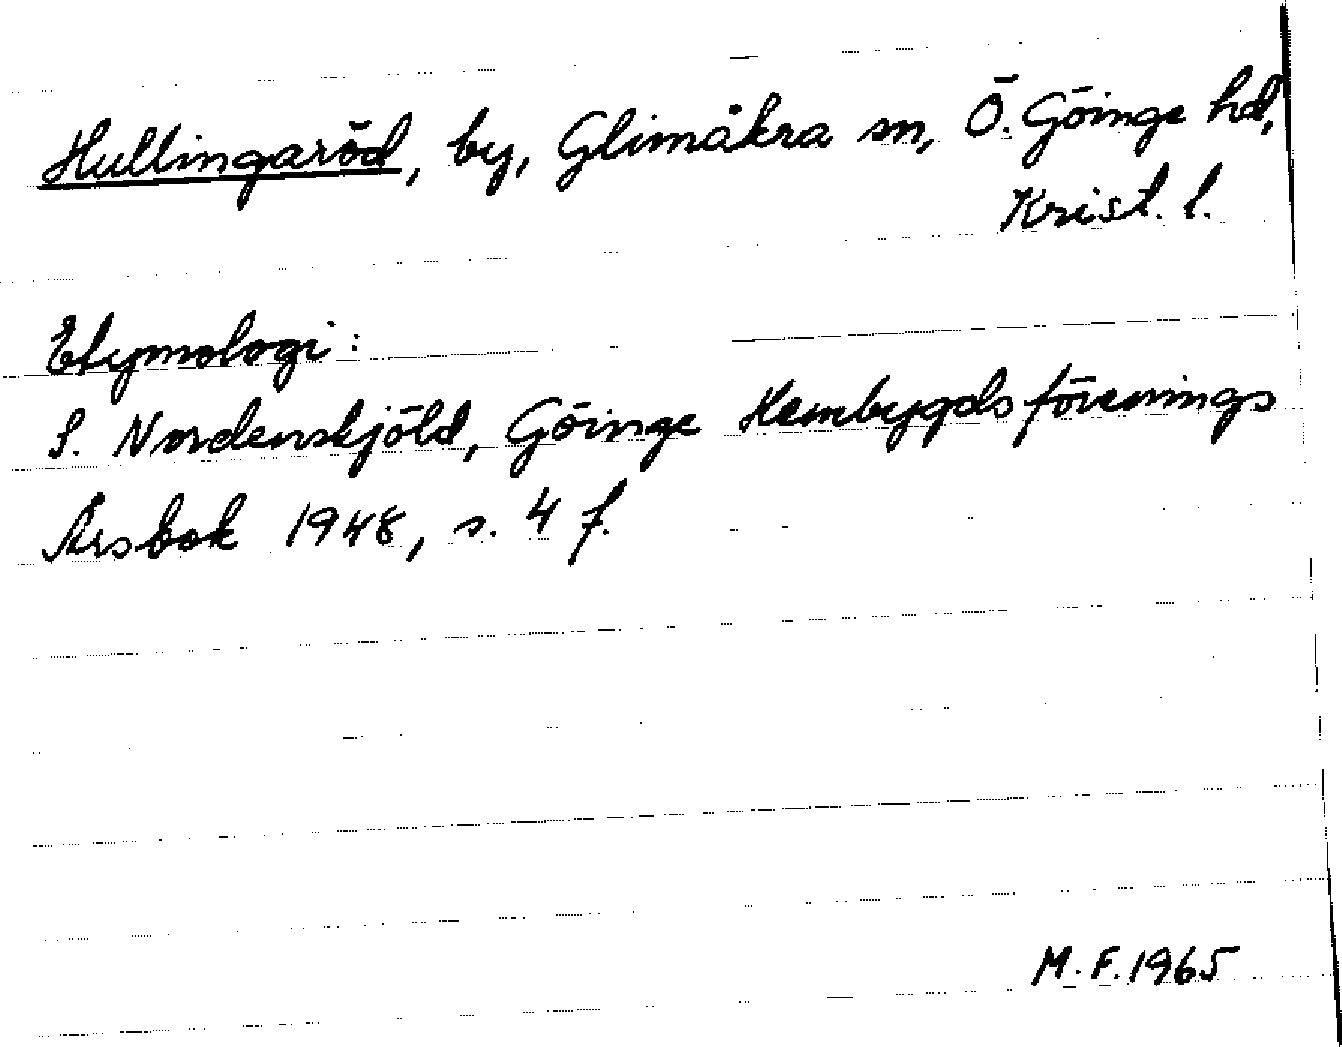 Hullingaröd, by, Glimåkra sn, Ö. Göinge hd,
Krist. l.
Etymologi:
S. Nordenskjöld, Göinge Hembygdsförenings
Årsbok 1948, s. 4 f.
M. F. 1965